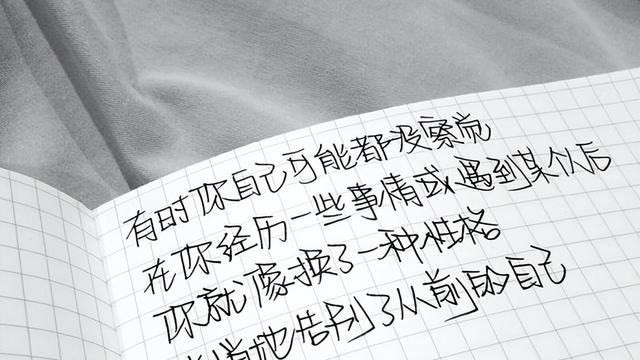 有时你自己可能都没察觉
在你经历一些事情或遇到某后
你就像换了一种性格
地告别了从前的自己